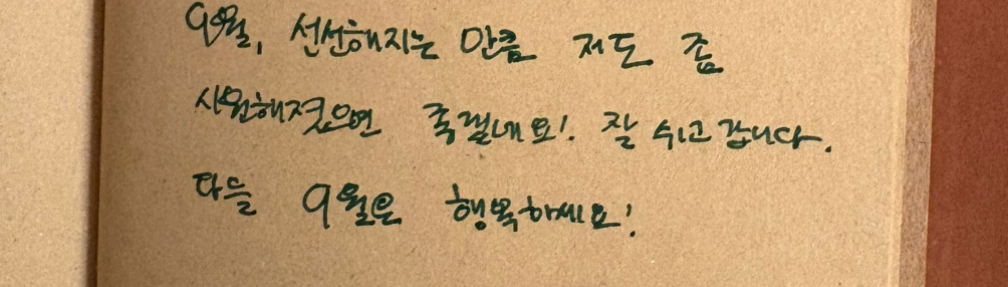 9월, 선선해지는 만큼 저도 좀
시원해졌으면 좋겠네요! 잘 쉬고 갑니다.
다들 9월은 행복하세요!